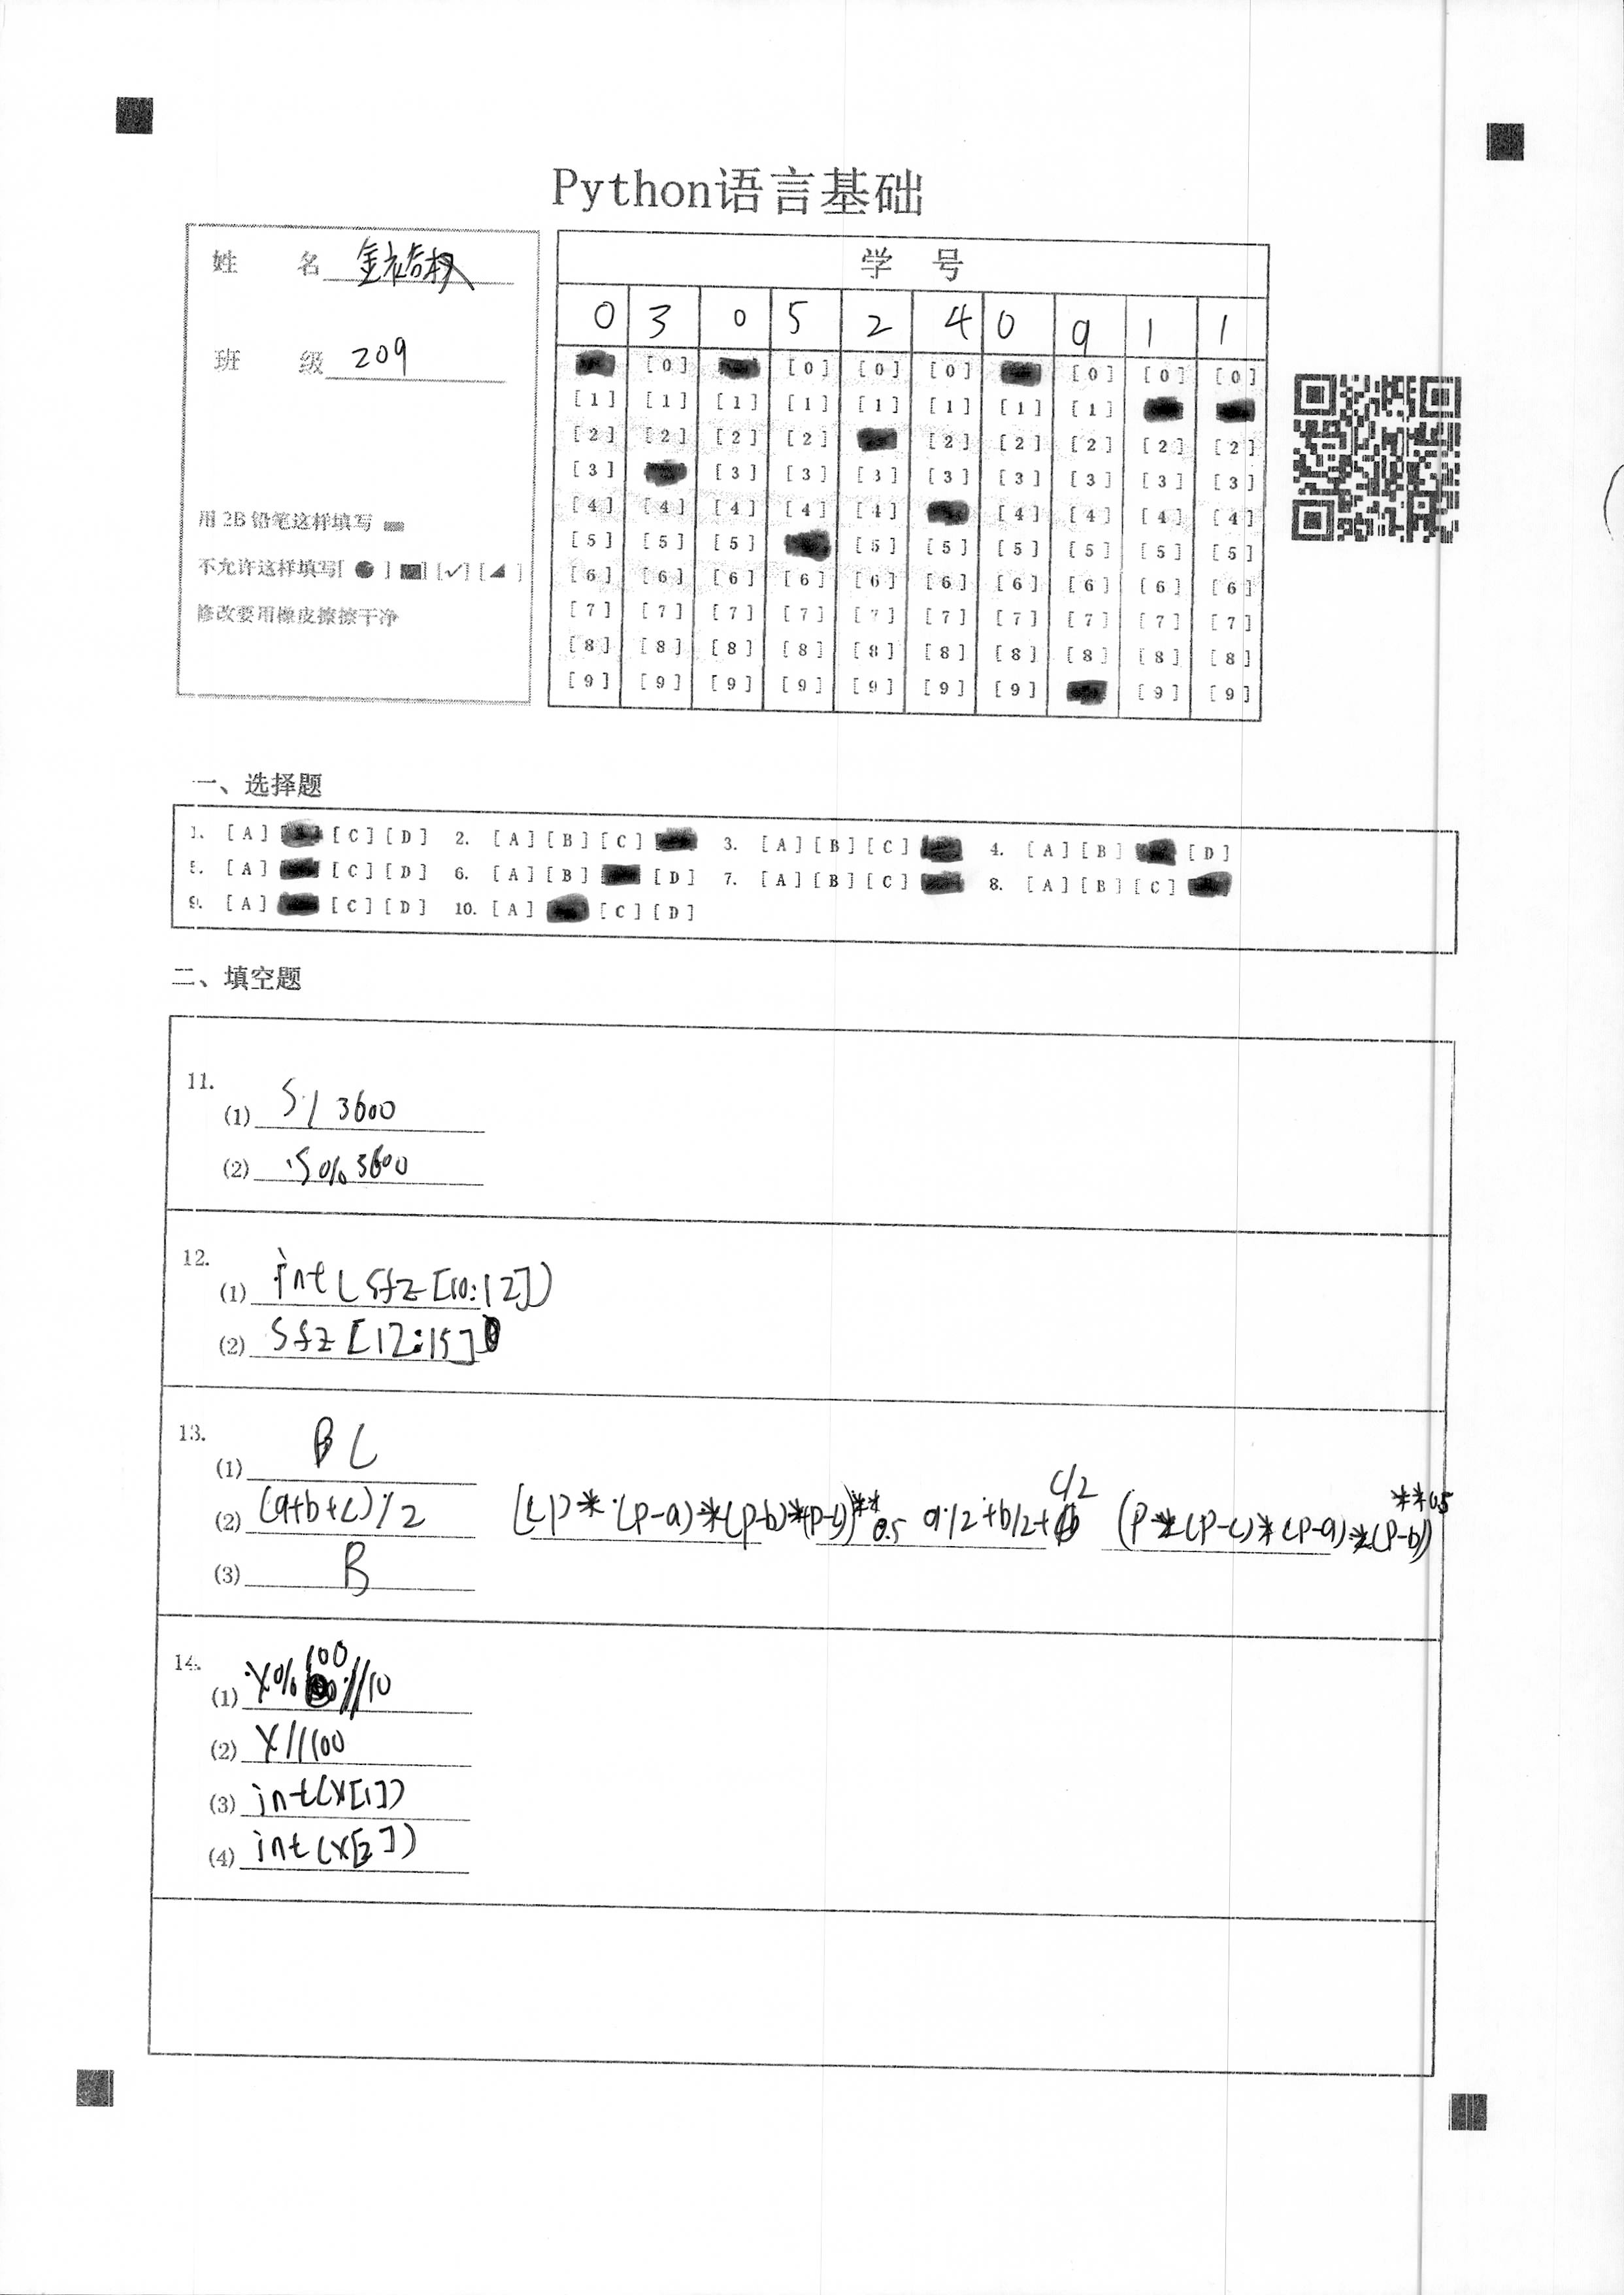 Python语言基础
姓 名 金裕权
班 级 209
用 2B 铅笔这样填写
不允许这样填写[ ● ] [■] [✓] [◢ ]
修改要用橡皮擦擦干净
学 号
0 3 0 5 2 4 0 9 1 1
[0] [0] [0] [0] [0] [0]
[1] [1] [1] [1] [1] [1] [1] [1]
[2] [2] [2] [2] [2] [2] [2] [2] [2]
[3] [3] [3] [3] [3] [3] [3] [3] [3]
[4] [4] [4] [4] [4] [4] [4] [4] [4]
[5] [5] [5] [5] [5] [5] [5] [5] [5]
[6] [6] [6] [6] [6] [6] [6] [6] [6] [6]
[7] [7] [7] [7] [7] [7] [7] [7] [7] [7]
[8] [8] [8] [8] [8] [8] [8] [8] [8] [8]
[9] [9] [9] [9] [9] [9] [9] [9] [9]
一、选择题
1. [A] [C] [D] 2. [A] [B] [C] 3. [A] [B] [C] 4. [A] [B] [D]
5. [A] [C] [D] 6. [A] [B] [D] 7. [A] [B] [C] 8. [A] [B] [C]
9. [A] [C] [D] 10. [A] [C] [D]
二、填空题
11.
(1) S/3600
(2) S%3600
12.
(1) int(sfz[10:12])
(2) sfz[12:15]
13.
(1) C
(2) (a+b+c)/2 (p*(p-a)*(p-b)*(p-c))**0.5 a/2+b/2+c/2 (p*(p-c)*(p-a)*(p-b))**0.5
(3) B
14.
(1) x%100//10
(2) x//100
(3) int(x[1])
(4) int(x[2])